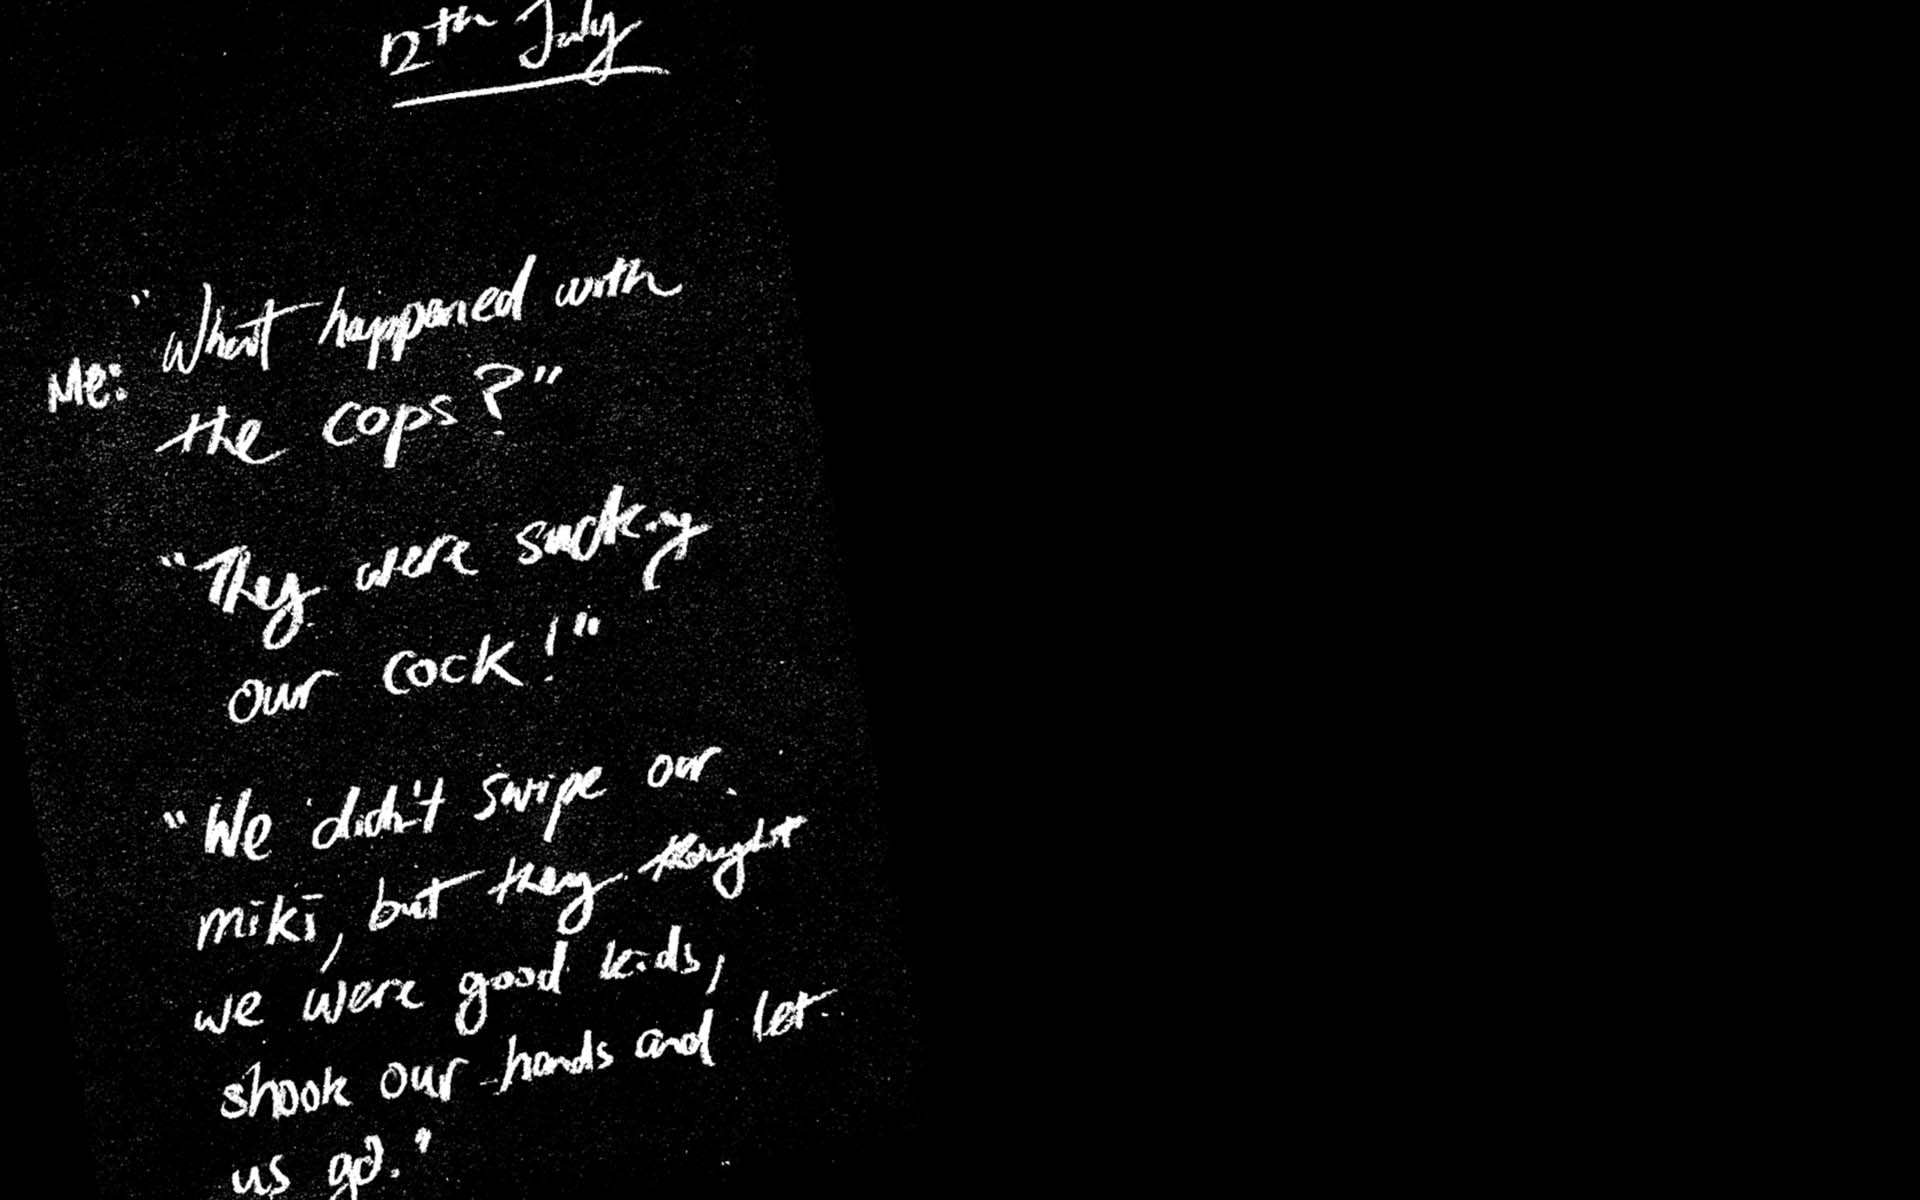 12th July
"What happened with
Me:
the cops?"
"They were sucking
our cock!"
"We didn't swipe our
mīkī, but they thought
we were good kids,
shook our hands and let
us go."